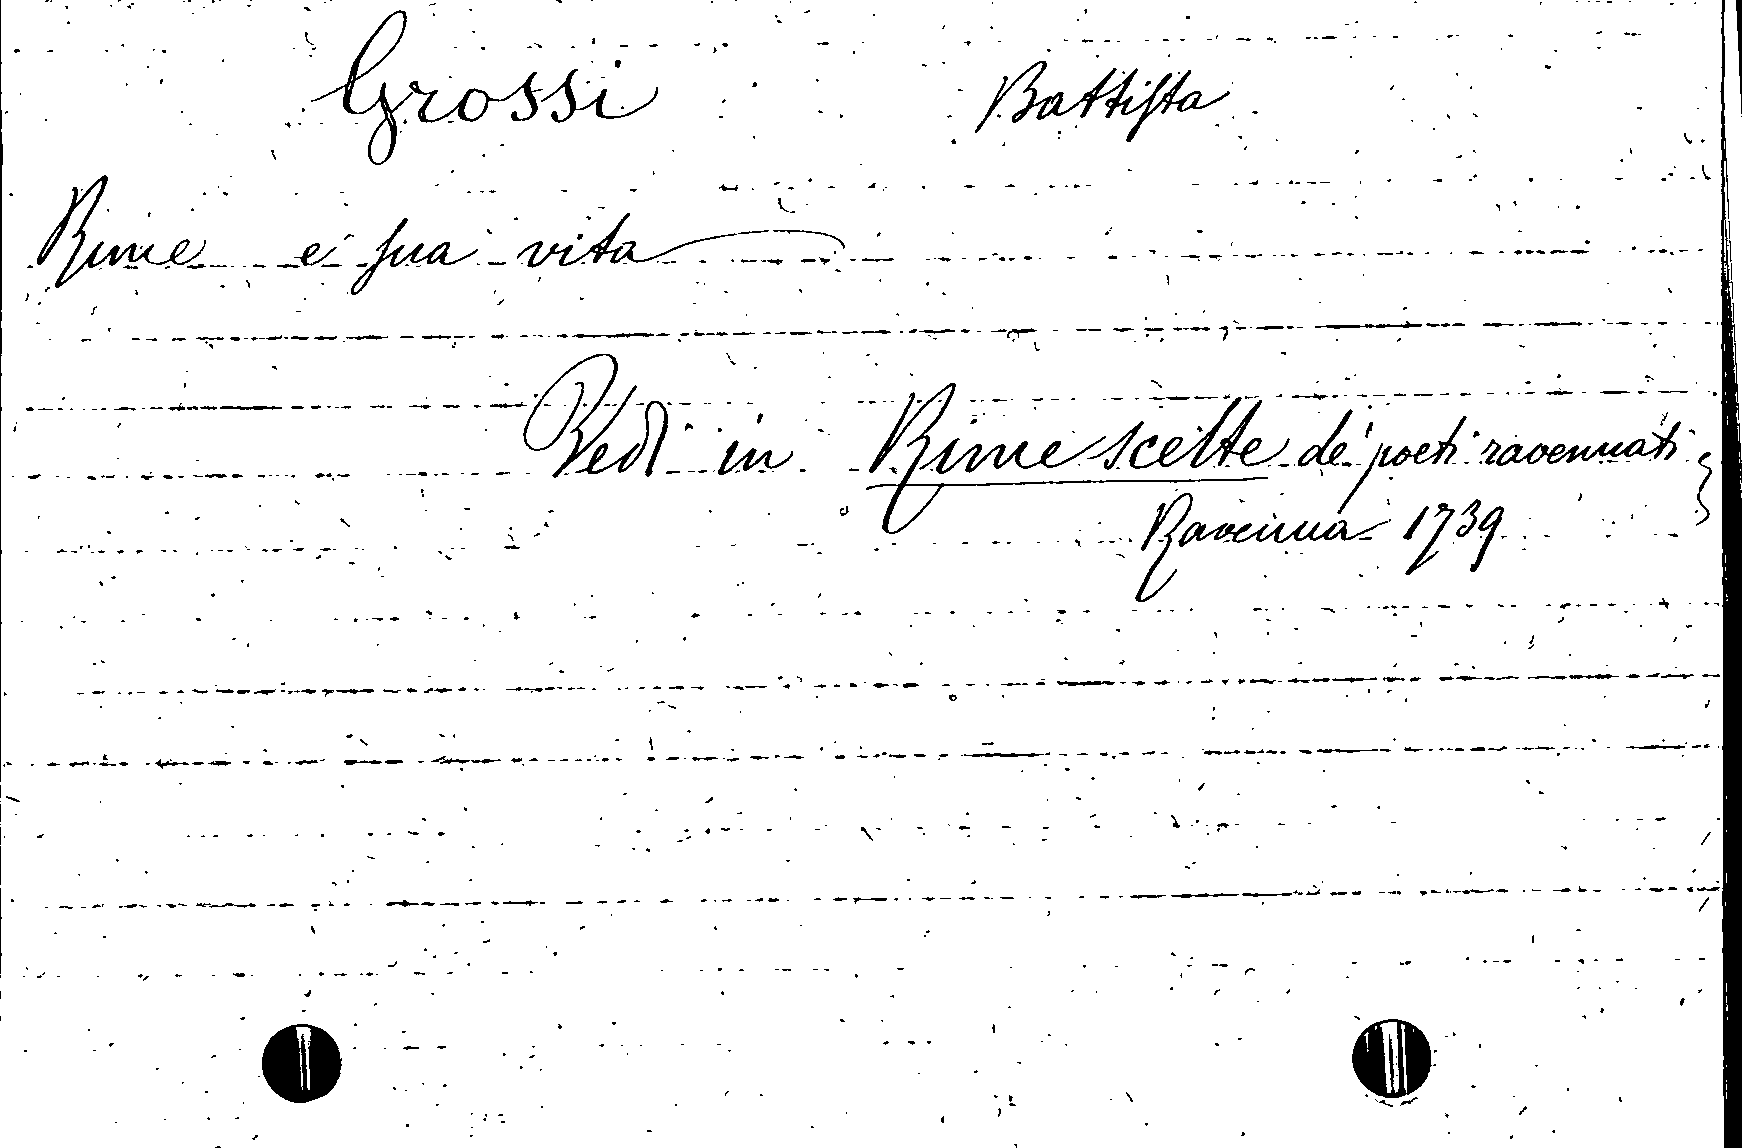 Grossi Battista
Rime e sua vita
Vedi in Rime scelte de' poeti ravennati
Ravenna 1739